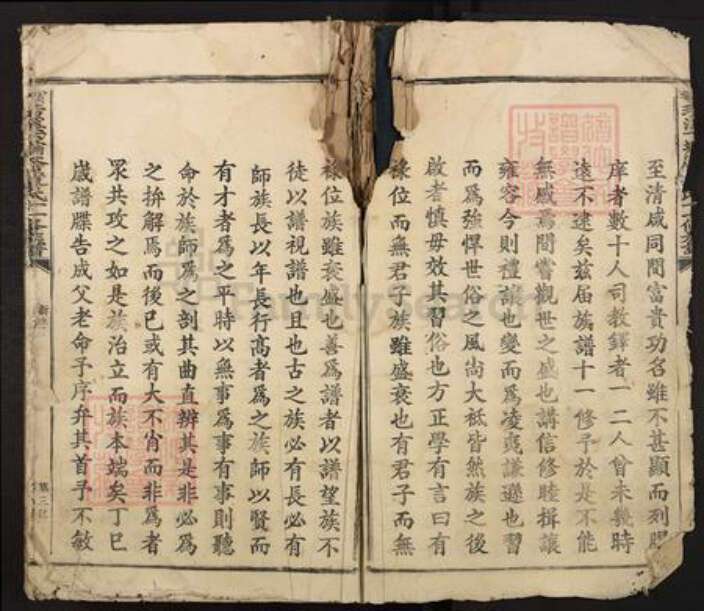 至清咸同間富貴功名雖不甚顯而列膠
庠者數十人司教鐸者一二人曾未幾時
遠不逮矣茲届族譜十一修予於是不能
無感焉間嘗觀世之盛也講信修睦揖讓
雍容今則禮讓也變而為凌夷謙遜也習
而為強悍世俗之風尚大袛皆然族之後
啟者慎毋效其習俗也方正學有言曰有
祿位而無君子族雖盛衰也有君子而無
祿位族雖衰盛也善為譜者以譜望族不
徒以譜視譜也且也古之族必有長必有
師族長以年長行高者為之族師以賢而
有才者為之平時以無事為事有事則聽
命於族師為之剖其曲直辨其是非必為
之拚解焉而後已或有大不肖而非為者
眾共攻之如是族治立而族本端矣丁巳
歲譜牒告成父老命予序弁其首予不敏
FamilySearch